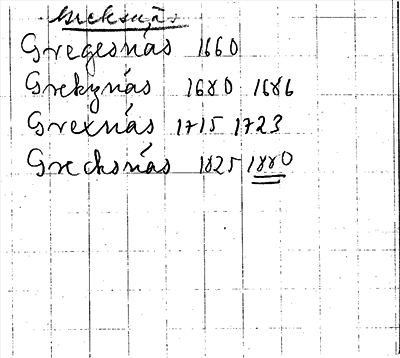 Greksnás
Gregesnás 1660
Grekynás 1680 1686
Grexnás 1715 1723
Grecksnás 1825 1880